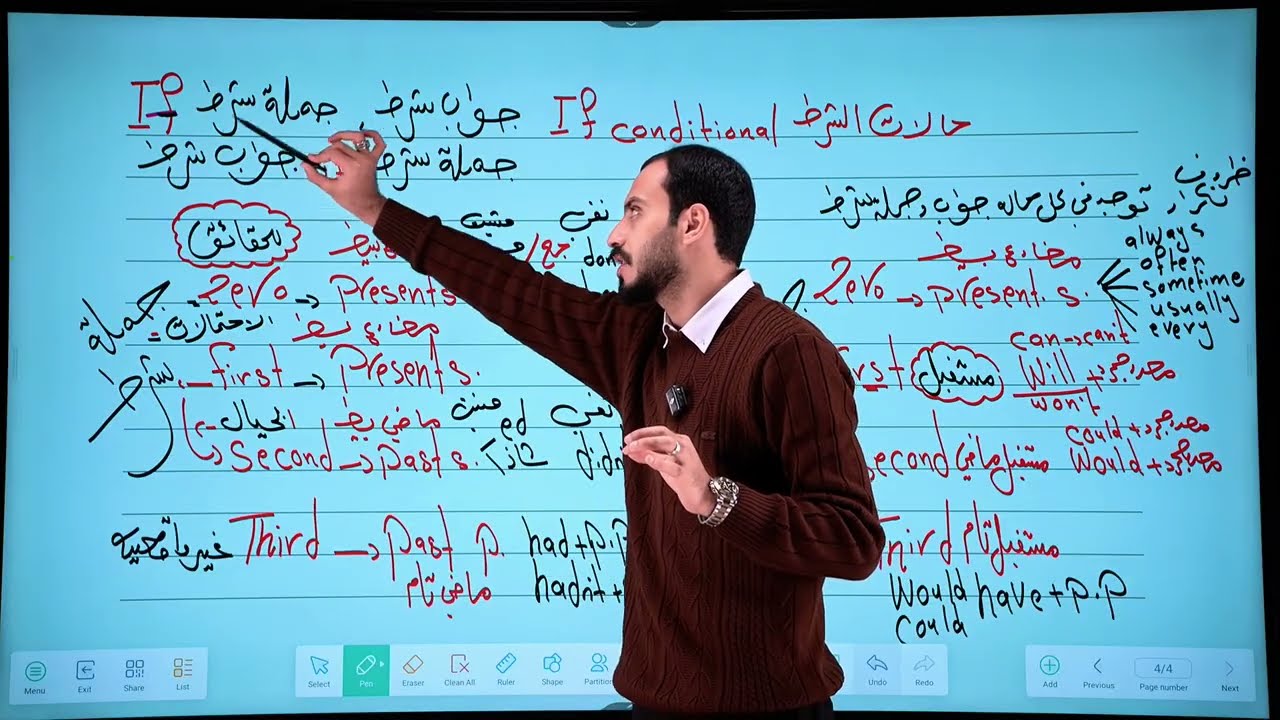 If جملة شرط , جواب شرط
جواب شرط جملة شرط
If conditional حالات الشرط
ظروف
تكرار توجد في كل حاله جواب وجملة شرط
للحقائق
مثبت نفي
جمع/
don
Zero → Presents
جملة شرط
الاحتمالات
مضارع بسيط
first → Presents.
الخيال ماضي بسيط مثبت ed نفي
Second → Past s. شاذ didn
Third → Past p. had + p.p
ماضي تام hadn't +
مضارع بسيط
Zero → present. s.
always
often
sometime
usually
every
can → can't
rst مستقبل Will + مصدر مجرد
won't
could + مصدر مجرد
econd مستقبل ماضي Would + مصدر مجرد
Third مستقبل تام
Would have + p.p
could
Menu Exit Share List
Select Pen Eraser Clean All Ruler Shape Partition Undo Redo
Add Previous 4/4 Page number Next